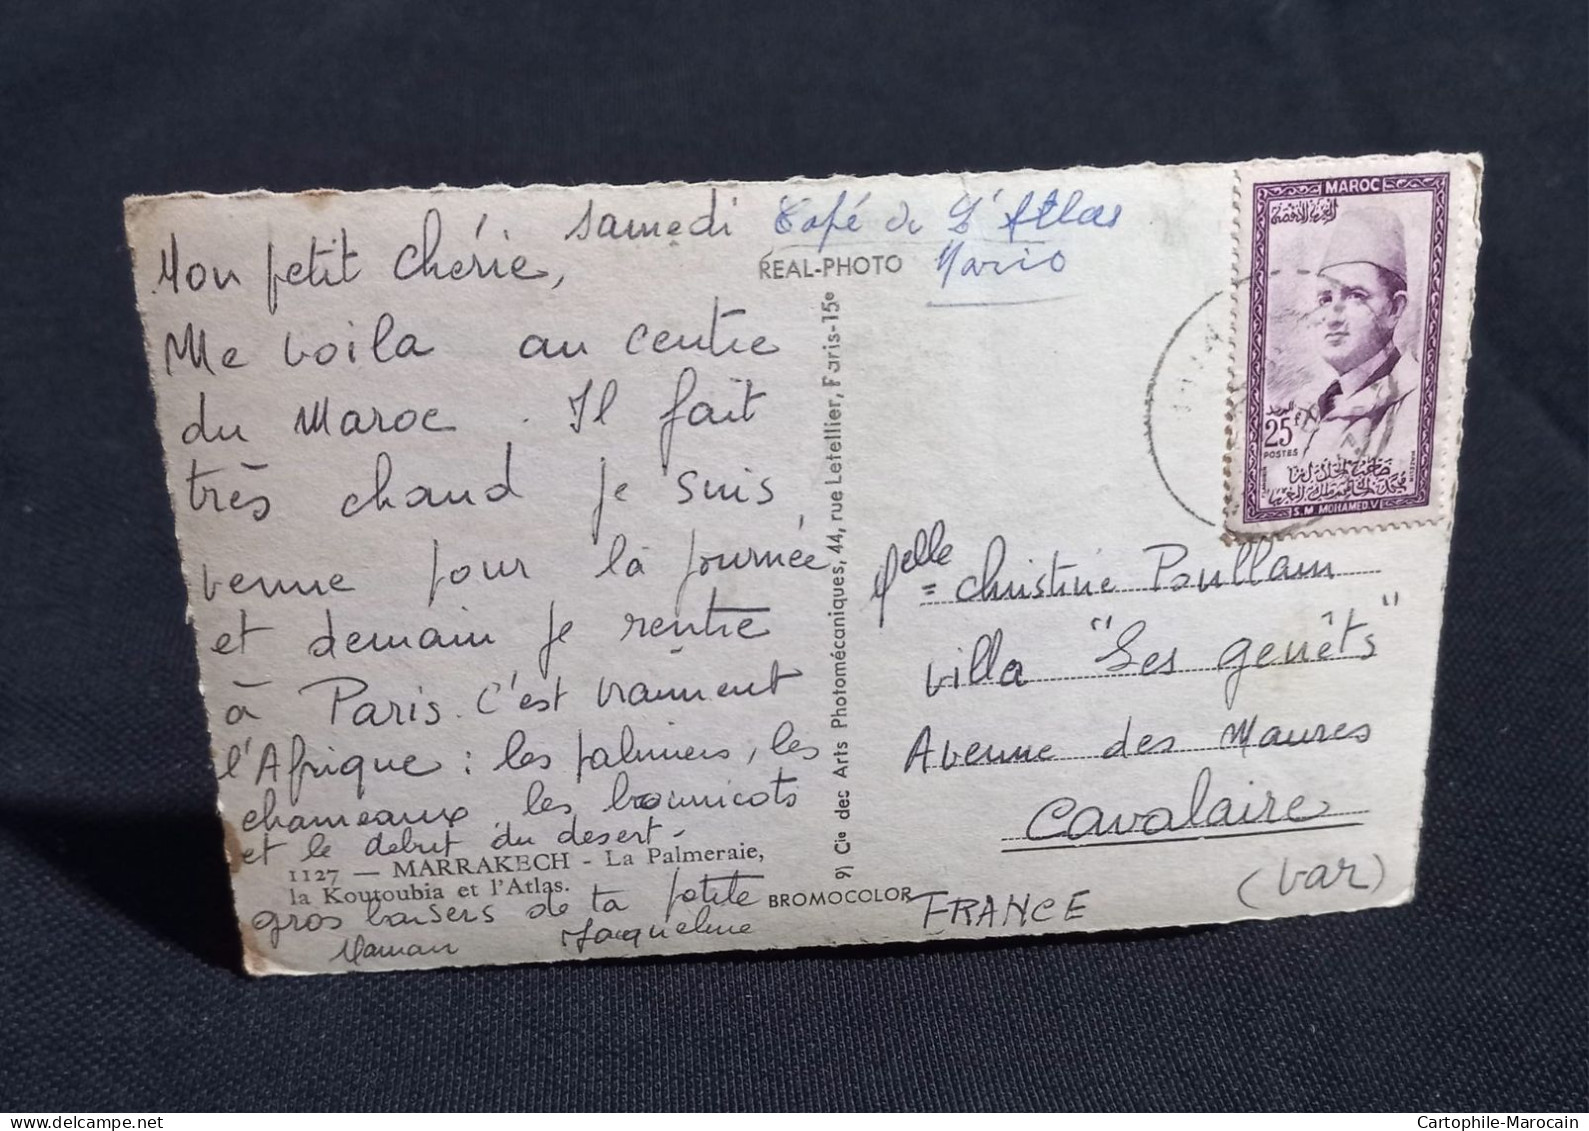 samedi
Mon petit chérie,
Me voila au centre
du Maroc. Il fait
très chaud je suis
venue pour la journée
et demain je rentre
à Paris. C'est vraiment
l'Afrique : les palmiers, les
chameaux, les bourricots
et le debut du desert.
1127 — MARRAKECH - La Palmeraie,
la Koutoubia et l'Atlas.
gros baisers de ta petite
Maman Jacqueline
Café de l'Atlas
REAL-PHOTO
Mario
9) Cie des Arts Photomécaniques, 44, rue Letellier, Paris-15e
BROMOCOLOR
MAROC
25F
POSTES
S.M MOHAMED.V
Melle Christine Poullain
villa "Les genêts"
Avenue des Maures
Cavalaire
(Var)
FRANCE
www.delcampe.net
Cartophile-Marocain